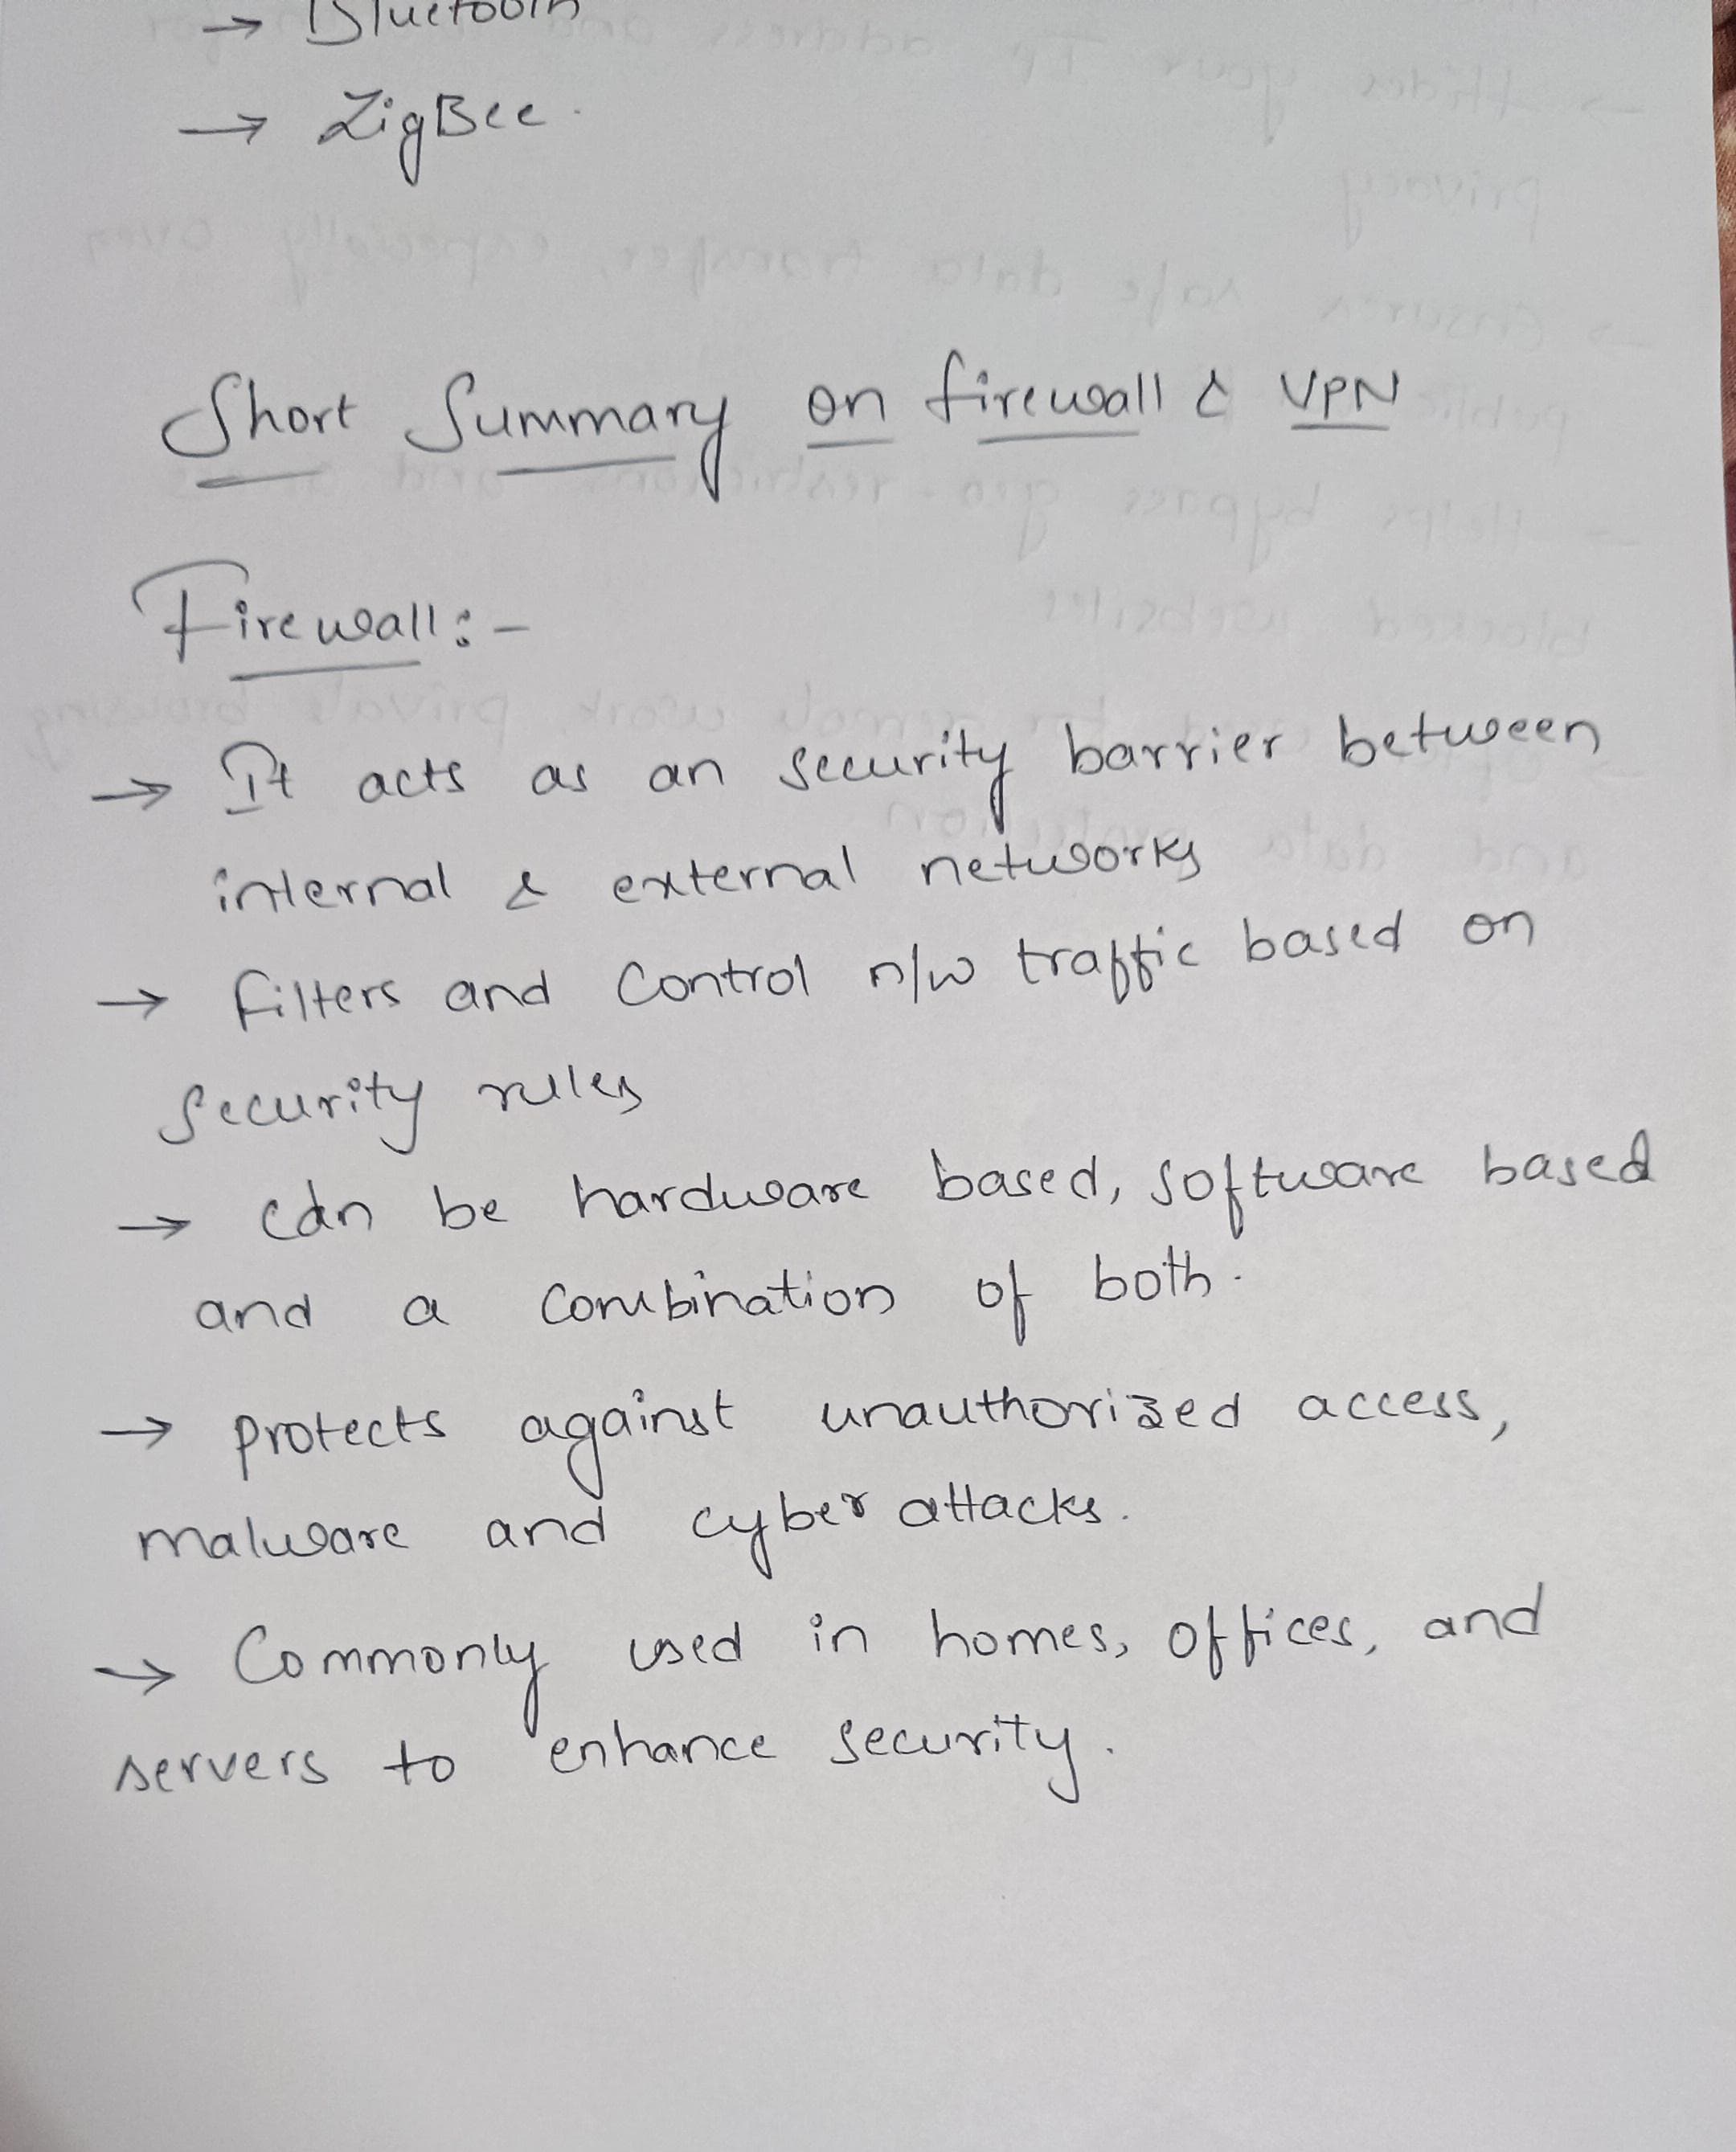 → Bluetooth
→ ZigBee.
Short Summary on firewall & VPN
Firewall:-
→ It acts as an security barrier between
internal & external networks
→ filters and control n/w traffic based on
security rules
→ can be hardware based, software based
and a combination of both.
→ protects against unauthorized access,
malware and cyber attacks.
→ Commonly used in homes, offices, and
servers to enhance security.